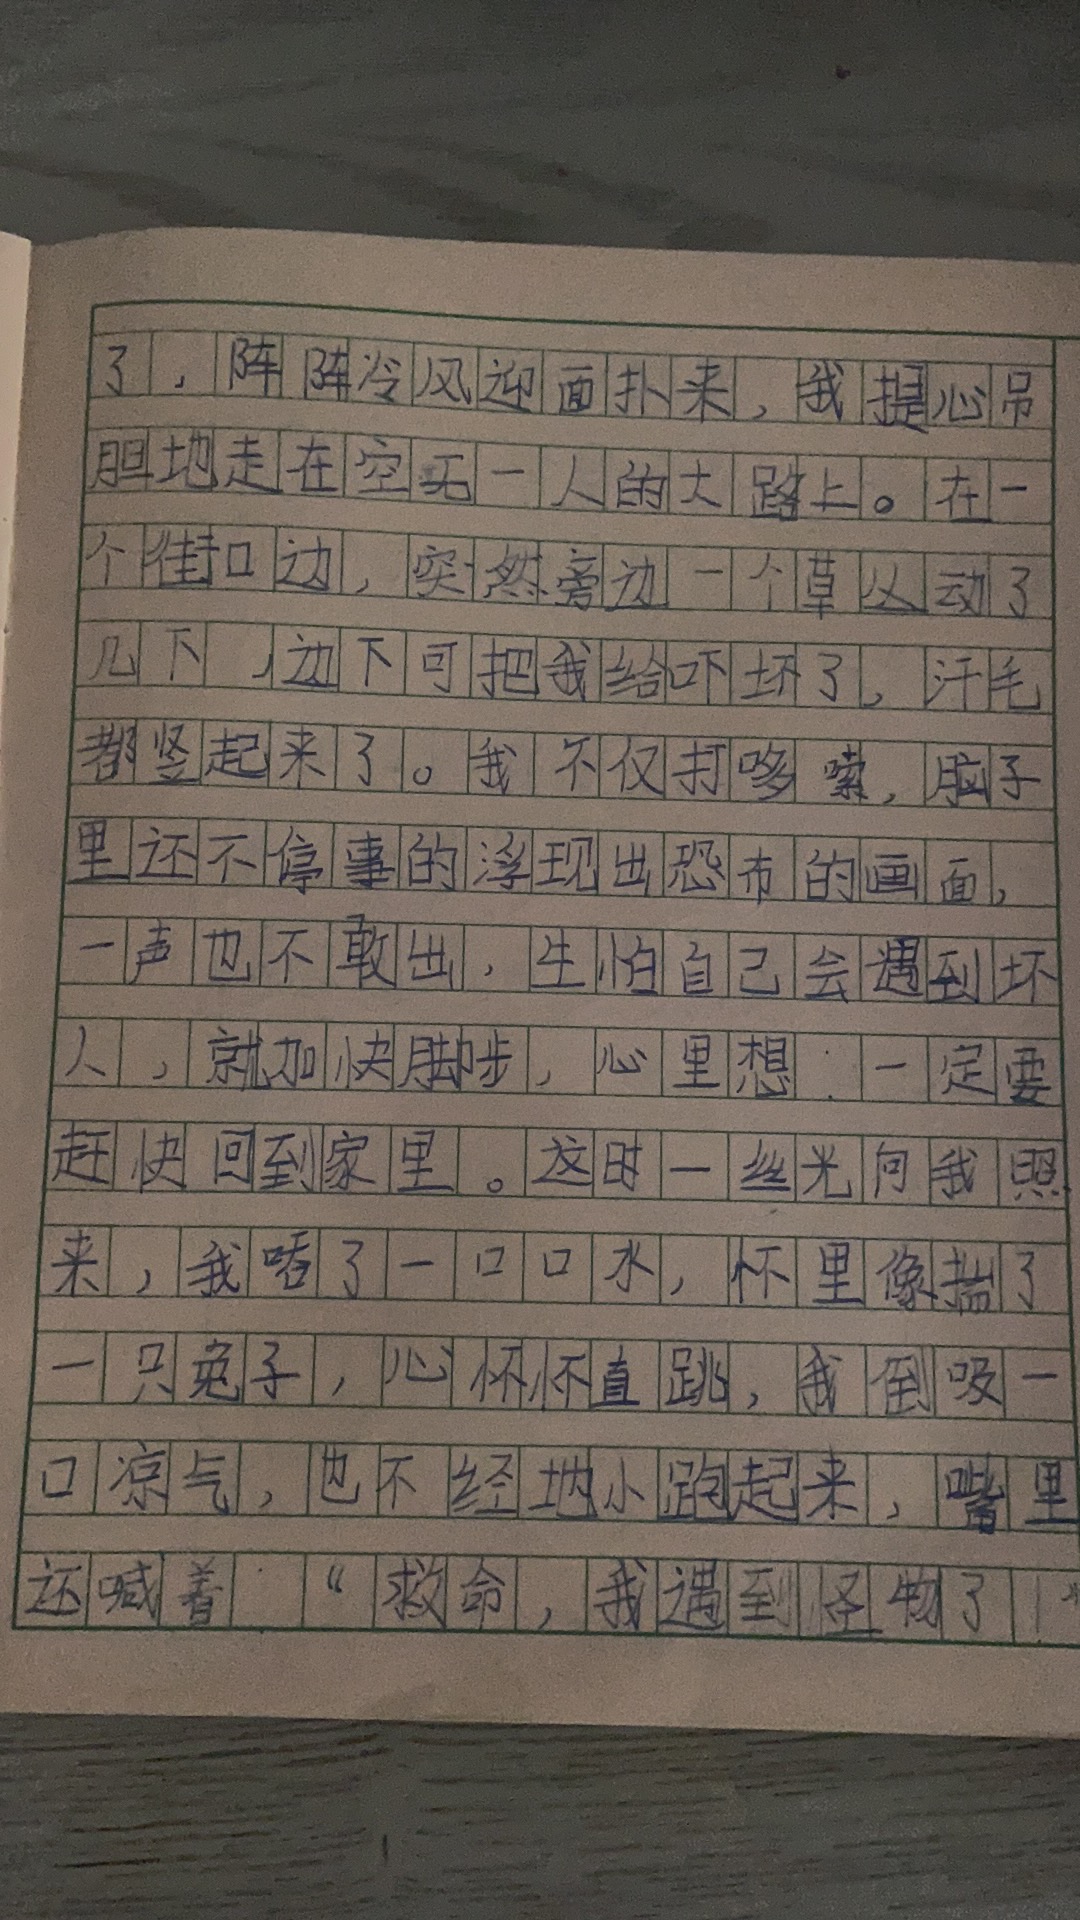 了，阵阵冷风迎面扑来，我提心吊
胆地走在空无一人的大路上。在一
个街口边，突然旁边一个草丛动了
几下，边下可把我给吓坏了，汗毛
都竖起来了。我不仅打哆嗦，脑子
里还不停事的浮现出恐布的画面，
一声也不敢出，生怕自己会遇到坏
人，就加快脚步，心里想：一定要
赶快回到家里。这时一丝光向我照
来，我咽了一口口水，怀里像揣了
一只兔子，心怀怀直跳，我倒吸一
口凉气，也不经地小跑起来，嘴里
还喊着：“救命，我遇到怪物了！”